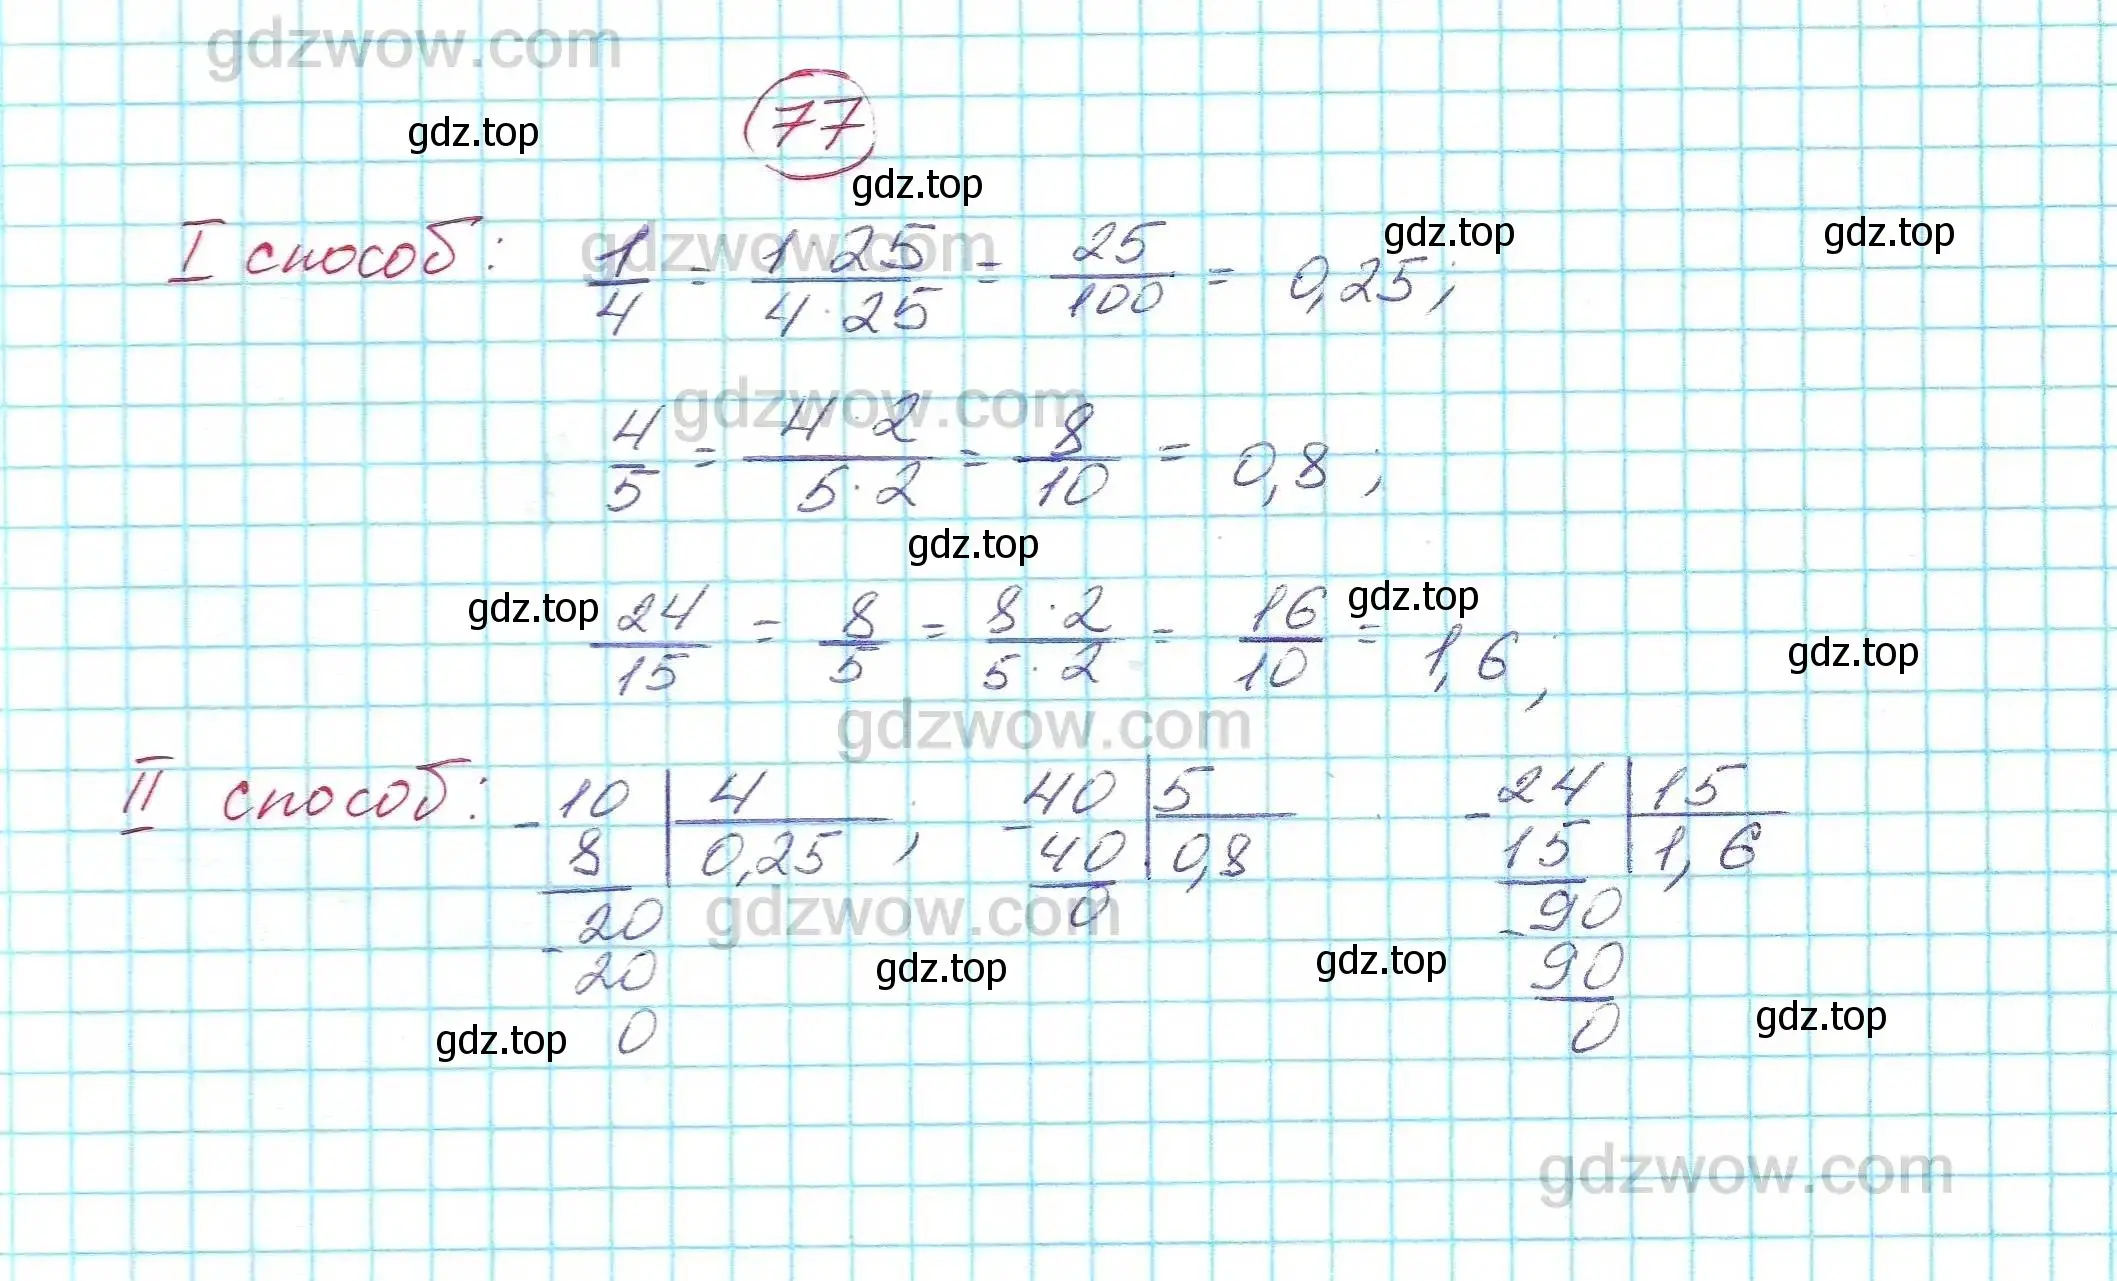 gdzwow.com
77
gdz.top
gdz.top
I способ: 1/4 = 1·25/4·25 = 25/100 = 0,25;
gdzwow.com
gdz.top
gdz.top
gdzwow.com
4/5 = 4·2/5·2 = 8/10 = 0,8;
gdz.top
gdz.top
gdz.top
24/15 = 8/5 = 8·2/5·2 = 16/10 = 1,6;
gdz.top
gdzwow.com
II способ:
- 10 | 4
8 | 0,25 ,
- 20
20
0
- 40 | 5
40 | 0,8
0
- 24 | 15
15 | 1,6
- 90
90
0
gdzwow.com
gdz.top
gdz.top
gdz.top
gdz.top
gdzwow.com